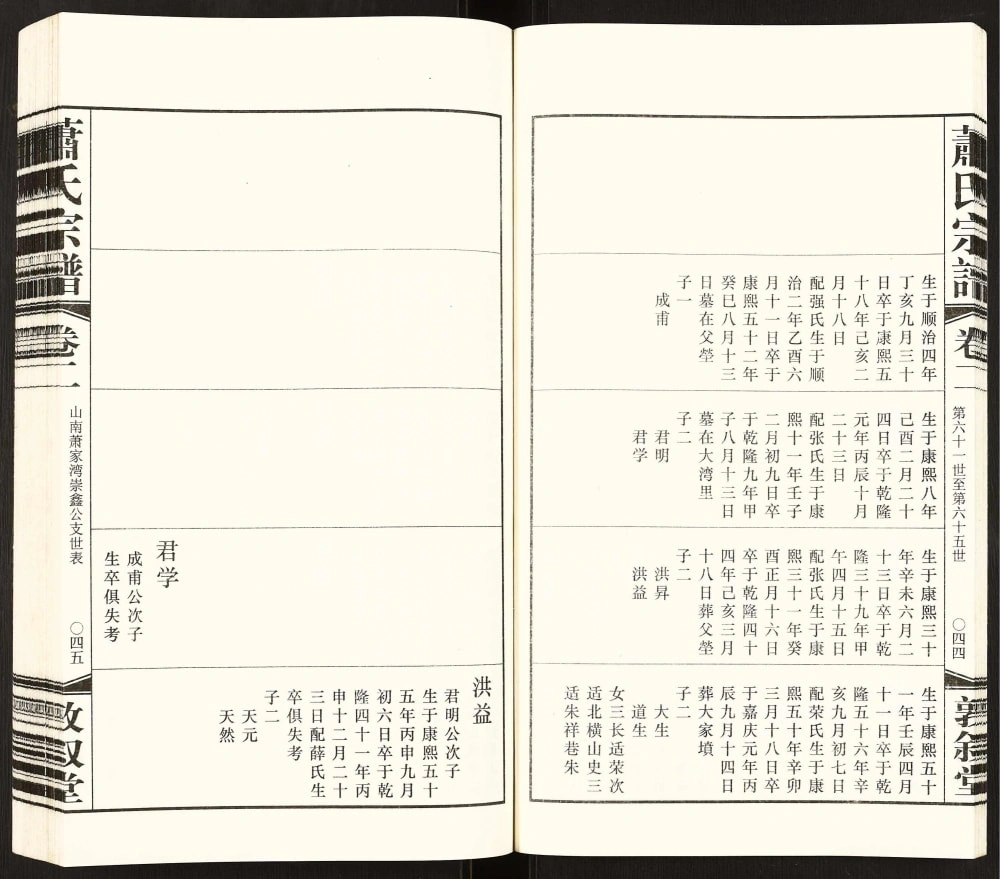 蕭氏宗譜
卷二
第六十一世至第六十五世
〇四四
敦叙堂
生于顺治四年
丁亥九月三十
日卒于康熙五
十八年己亥二
月十八日
配强氏生于顺
治二年乙酉六
月十一日卒于
康熙五十二年
癸巳八月十三
日墓在父茔
子一
成甫
生于康熙八年
己酉二月二十
四日卒于乾隆
元年丙辰十月
二十三日
配张氏生于康
熙十一年壬子
二月初九日卒
于乾隆九年甲
子八月十三日
墓在大湾里
子二
君明
君学
生于康熙三十
年辛未六月二
十三日卒于乾
隆三十九年甲
午四月十五日
配张氏生于康
熙三十一年癸
酉正月十六日
卒于乾隆四十
四年己亥三月
十八日葬父茔
子二
洪昇
洪益
生于康熙五十
一年壬辰四月
十一日卒于乾
隆五十六年辛
亥九月初七日
配荣氏生于康
熙五十年辛卯
三月十八日卒
于嘉庆元年丙
辰九月十四日
葬大家墳
子二
大生
道生
女三长适荣次
适北横山史三
适朱祥巷朱
君学
成甫公次子
生卒俱失考
洪益
君明公次子
生于康熙五十
五年丙申九月
初六日卒于乾
隆四十一年丙
申十二月二十
三日配薛氏生
卒俱失考
子二
天元
天然
蕭氏宗譜
卷二
山南萧家湾崇鑫公支世表
〇四五
敦叙堂